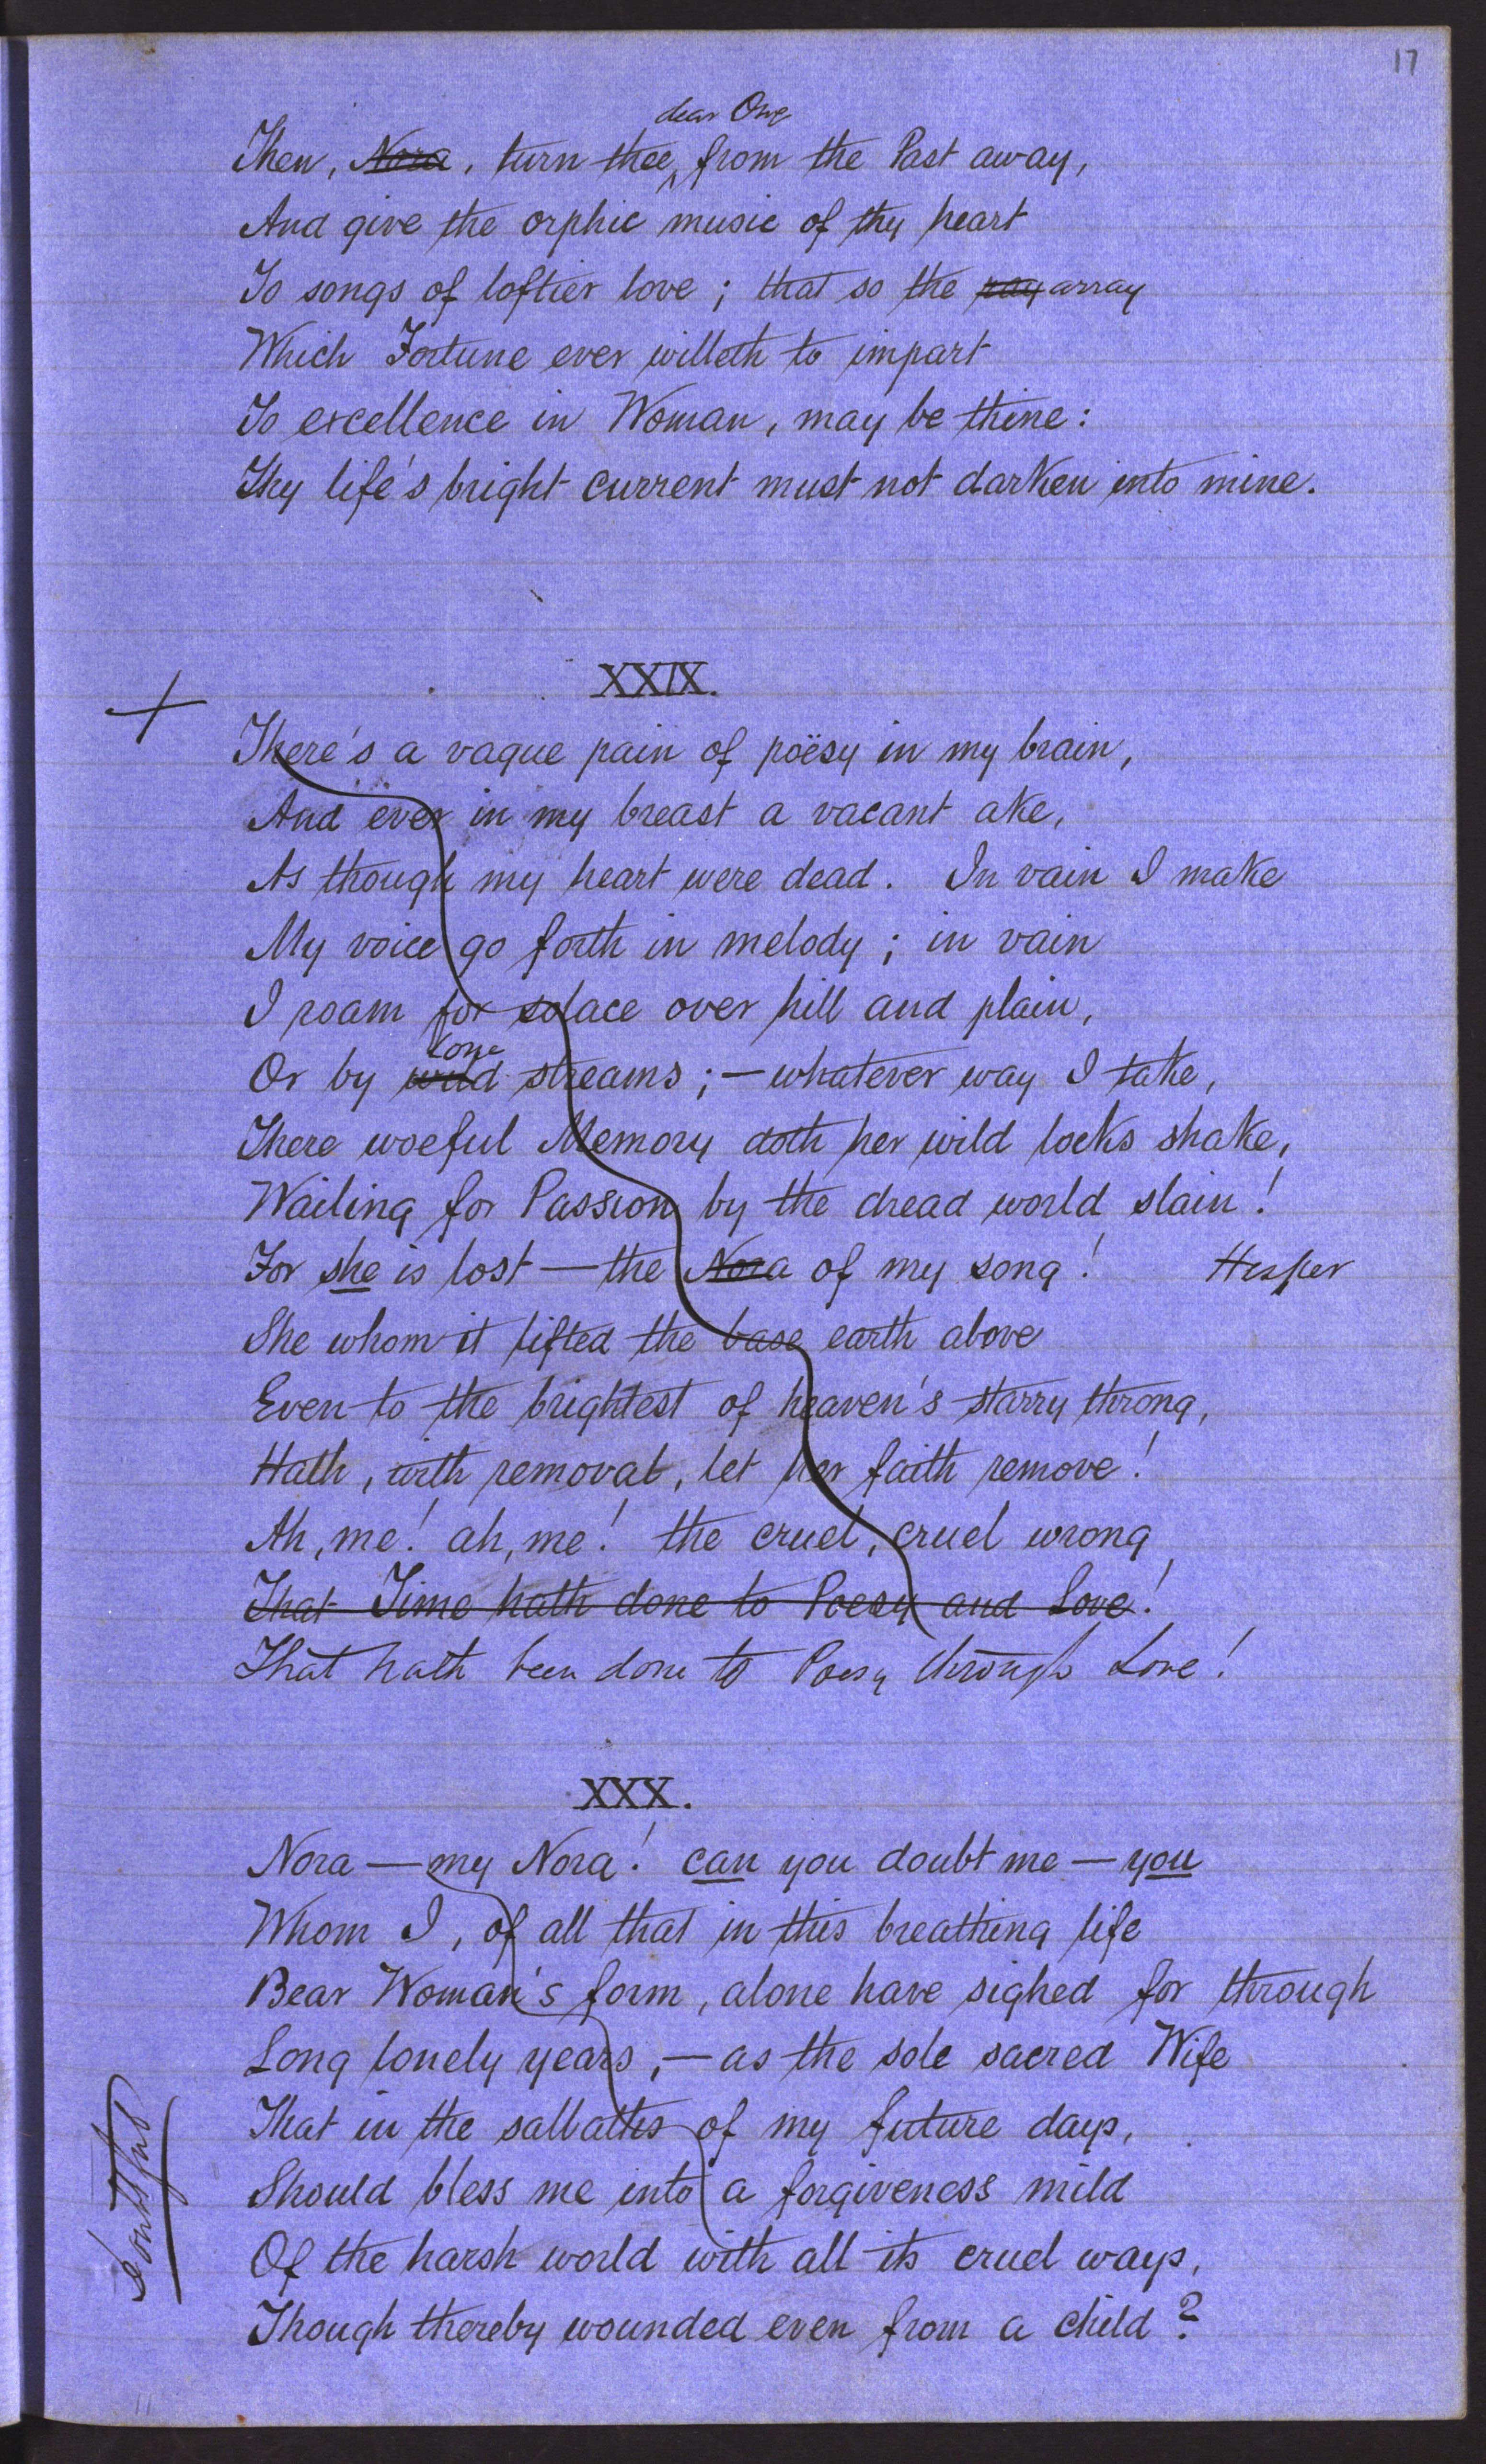 17
dear One
Then, Nora, turn thee, from the Past away,
And give the orphic music of thy heart
To songs of loftier love; that so the ray array
Which Fortune ever willeth to impart
To excellence in Woman, may be thine:
Thy life's bright current must not darken into mine.
XXIX.
There's a vague pain of poësy in my brain,
And ever in my breast a vacant ake,
As though my heart were dead. In vain I make
My voice go forth in melody; in vain
I roam for solace over hill and plain,
lone
Or by wild streams;—whatever way I take,
There woeful Memory doth her wild locks shake,
Wailing for Passion by the dread world slain!
For she is lost—the Nora of my song! Hesper
She whom it lifted the base earth above
Even to the brightest of heaven's starry throng,
Hath, with removal, let her faith remove!
Ah, me! ah, me! the cruel, cruel wrong
That Time hath done to Poesy and Love!
That hath been done to Poesy through Love!
XXX.
Nora—my Nora! can you doubt me—you
Whom I, of all that in this breathing life
Bear Woman's form, alone have sighed for through
Long lonely years,—as the sole sacred Wife
That in the sabbaths of my future days,
Should bless me into a forgiveness mild
Of the harsh world with all its cruel ways,
Though thereby wounded even from a child?
doubtful
11